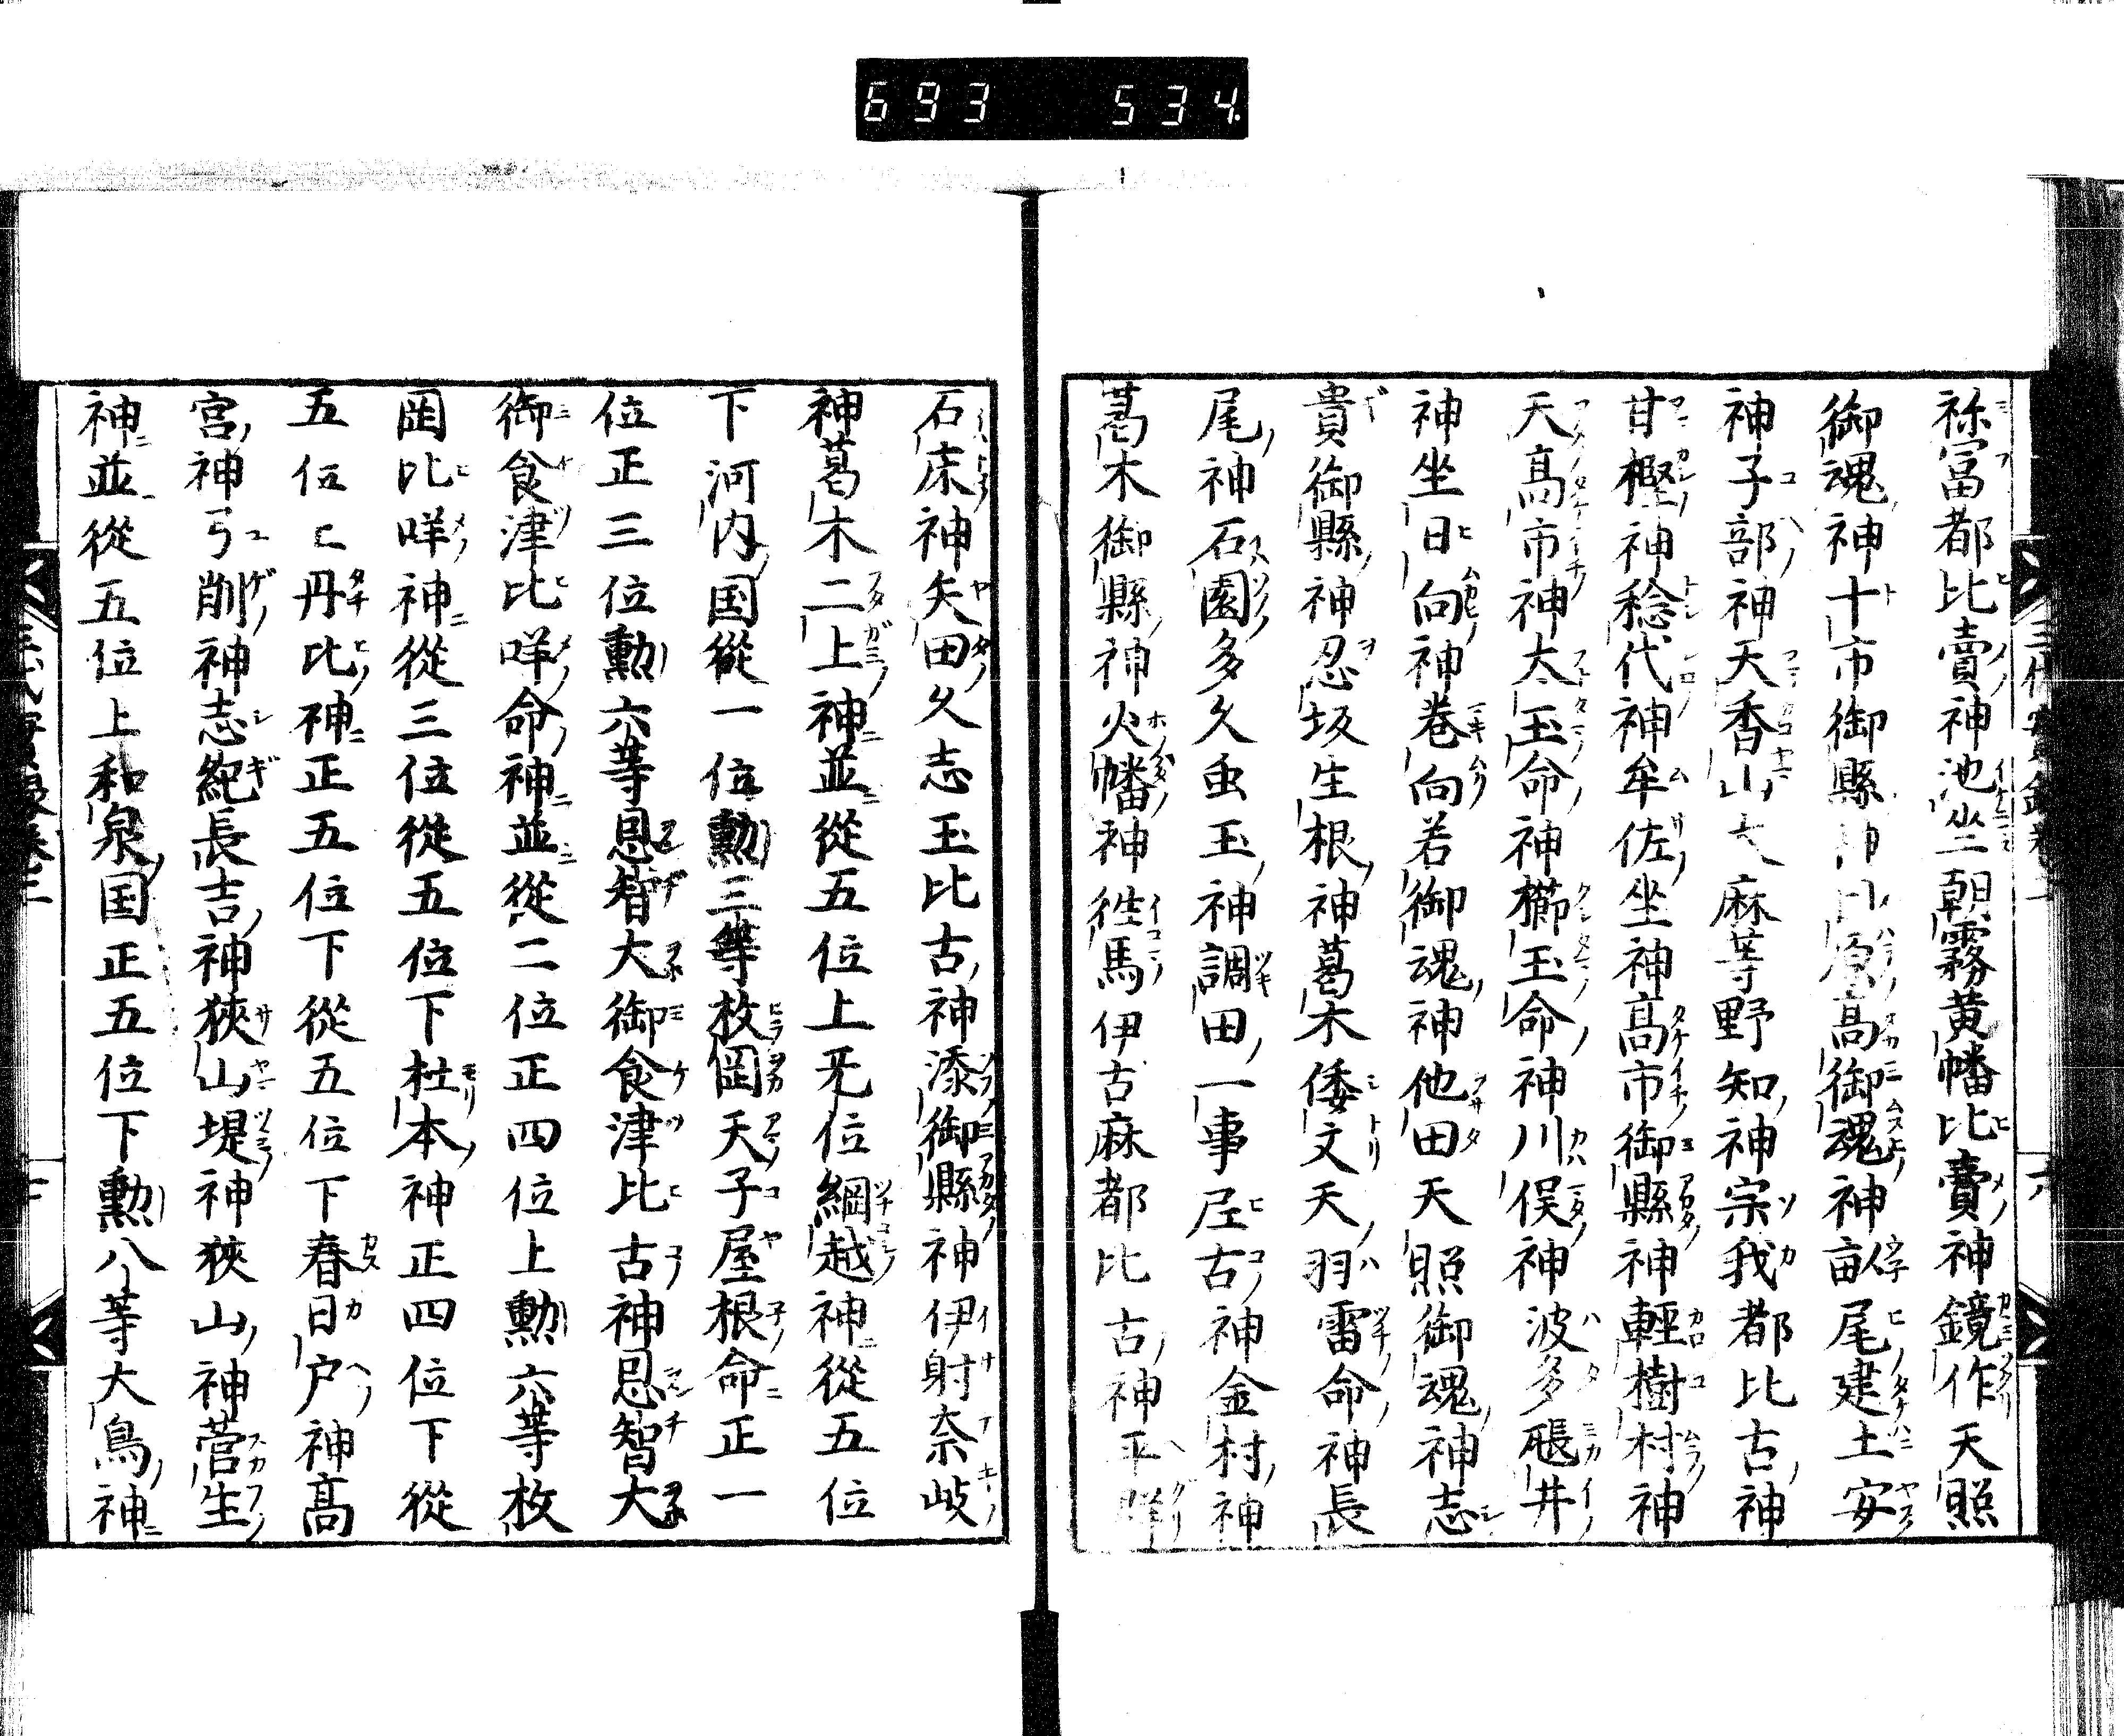 693 534
祢冨都比賣神池坐朝霧黄幡比賣神鏡作天照
御魂神十市御縣神目原高御魂神畝尾建土安
神子部神天香山大麻等野知神宗我都比古神
甘樫神稔代神牟佐坐神高市御縣神輕樹村神
天高市神太玉命神櫛玉命神川俣神波多𤭖井
神坐日向神巻向若御魂神他田天照御魂神志
貴御縣神忍坂生根神葛木倭文天羽雷命神長
尾神石園多久虫玉神調田一事尼古神金村神
葛木御縣神火幡神徃馬伊古麻都比古神平群
石床神矢田久志玉比古神添御縣神伊射奈岐
神葛木二上神並從五位上无位綱越神從五位
下河内国從一位勲三等枚岡天子屋根命正一
位正三位勲六等恩智大御食津比古神恩智大
御食津比咩命神並從二位正四位上勲六等枚
岡比咩神從三位從五位下杜本神正四位下從
五位上丹比神正五位下從五位下春日戸神高
宮神弓削神志紀長吉神狹山堤神狹山神菅生
神並從五位上和泉国正五位下勲八等大鳥神